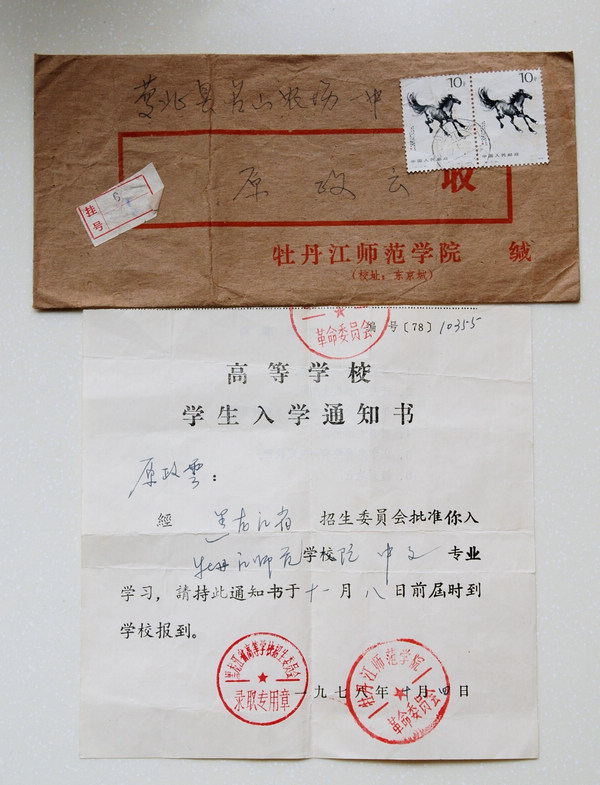 萝北县名山农场一中
10分
10分
中国人民邮政
中国人民邮政
原政云
收
挂号
6
牡丹江师范学院 缄
(校址:东京城)
革命委员会
编号〔78〕10355
高等学校
学生入学通知书
原政雲:
經 黑龙江省 招生委员会批准你入
牡丹江师范学校院 中文 专业
学习,請持此通知书于十一月八日前屆时到
学校报到。
黑龙江省高等学校招生委员会
录取专用章
牡丹江师范学院
革命委员会
一九七八年十月四日